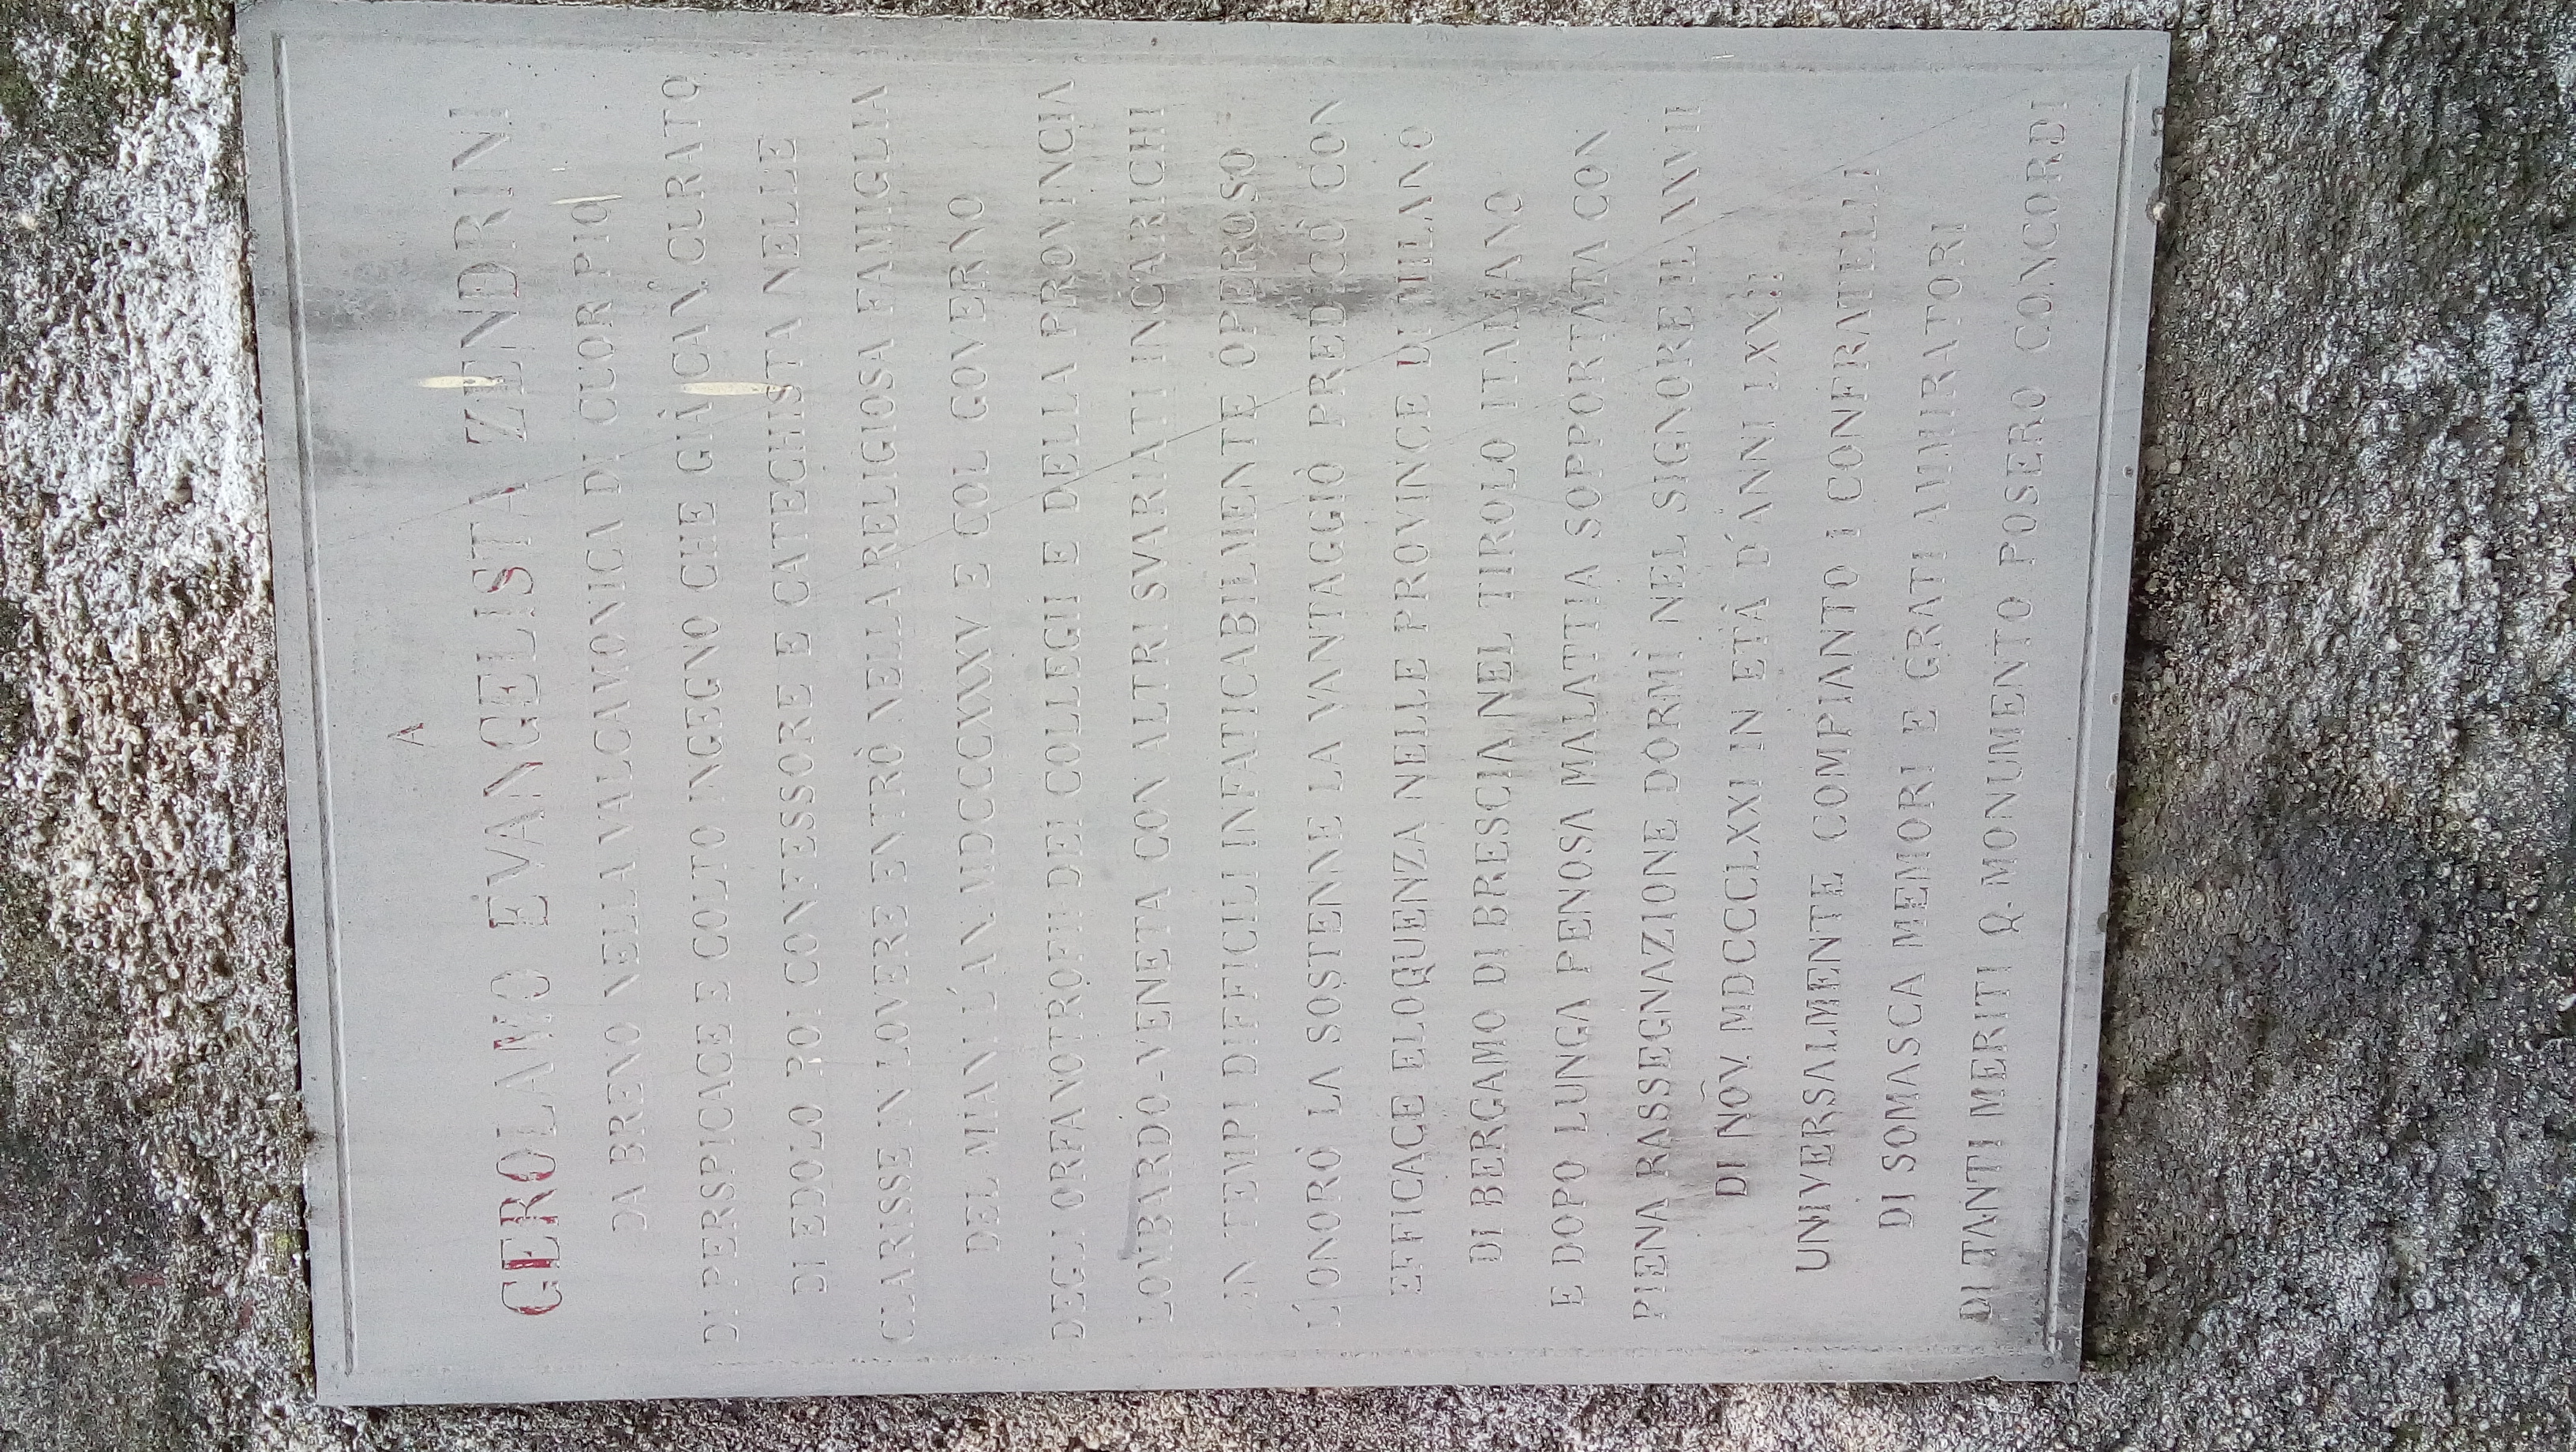 A
GEROLAMO EVANGELISTA ZENDRINI
DA BRENO NELLA VALCAMONICA DI CUOR PIO
DI PERSPICACE E COLTO INGEGNO CHE GIÀ CAN. CURATO
DI EDOLO POI CONFESSORE E CATECHISTA NELLE
CLARISSE IN LOVERE ENTRÒ NELLA RELIGIOSA FAMIGLIA
DEL MIANI L'AN MDCCCXXXV E COL GOVERNO
DEGLI ORFANOTROFII DEI COLLEGII E DELLA PROVINCIA
LOMBARDO-VENETA CON ALTRI SVARIATI INCARICHI
IN TEMPI DIFFICILI INFATICABILMENTE OPEROSO
L'ONORÒ LA SOSTENNE LA VANTAGGIÒ PREDICÒ CON
EFFICACE ELOQUENZA NELLE PROVINCE DI MILANO
DI BERGAMO DI BRESCIA NEL TIROLO ITALIANO
E DOPO LUNGA PENOSA MALATTIA SOPPORTATA CON
PIENA RASSEGNAZIONE DORMÌ NEL SIGNORE IL
DI NOV. MDCCCLXXI IN ETÀ D'ANNI LXXII
UNIVERSALMENTE COMPIANTO I CONFRATELLI
DI SOMASCA MEMORI E GRATI AMMIRATORI
DI TANTI MERITI Q. MONUMENTO POSERO CONCORDI